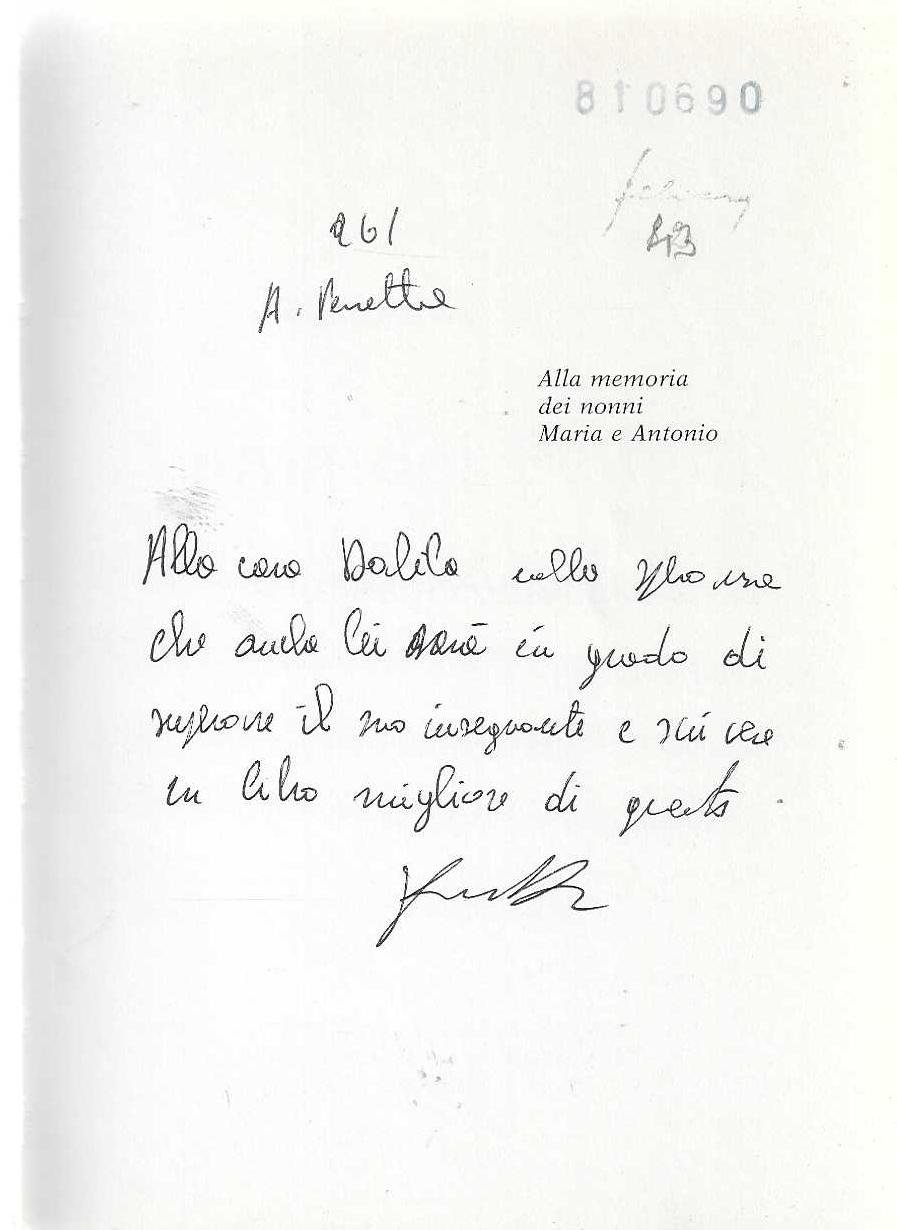 810690
261
A.
Alla memoria
dei nonni
Maria e Antonio
Alla cara Dalila nella speranza
che anche lei sarà in grado di
superare il suo insegnante e scrivere
un libro migliore di questo